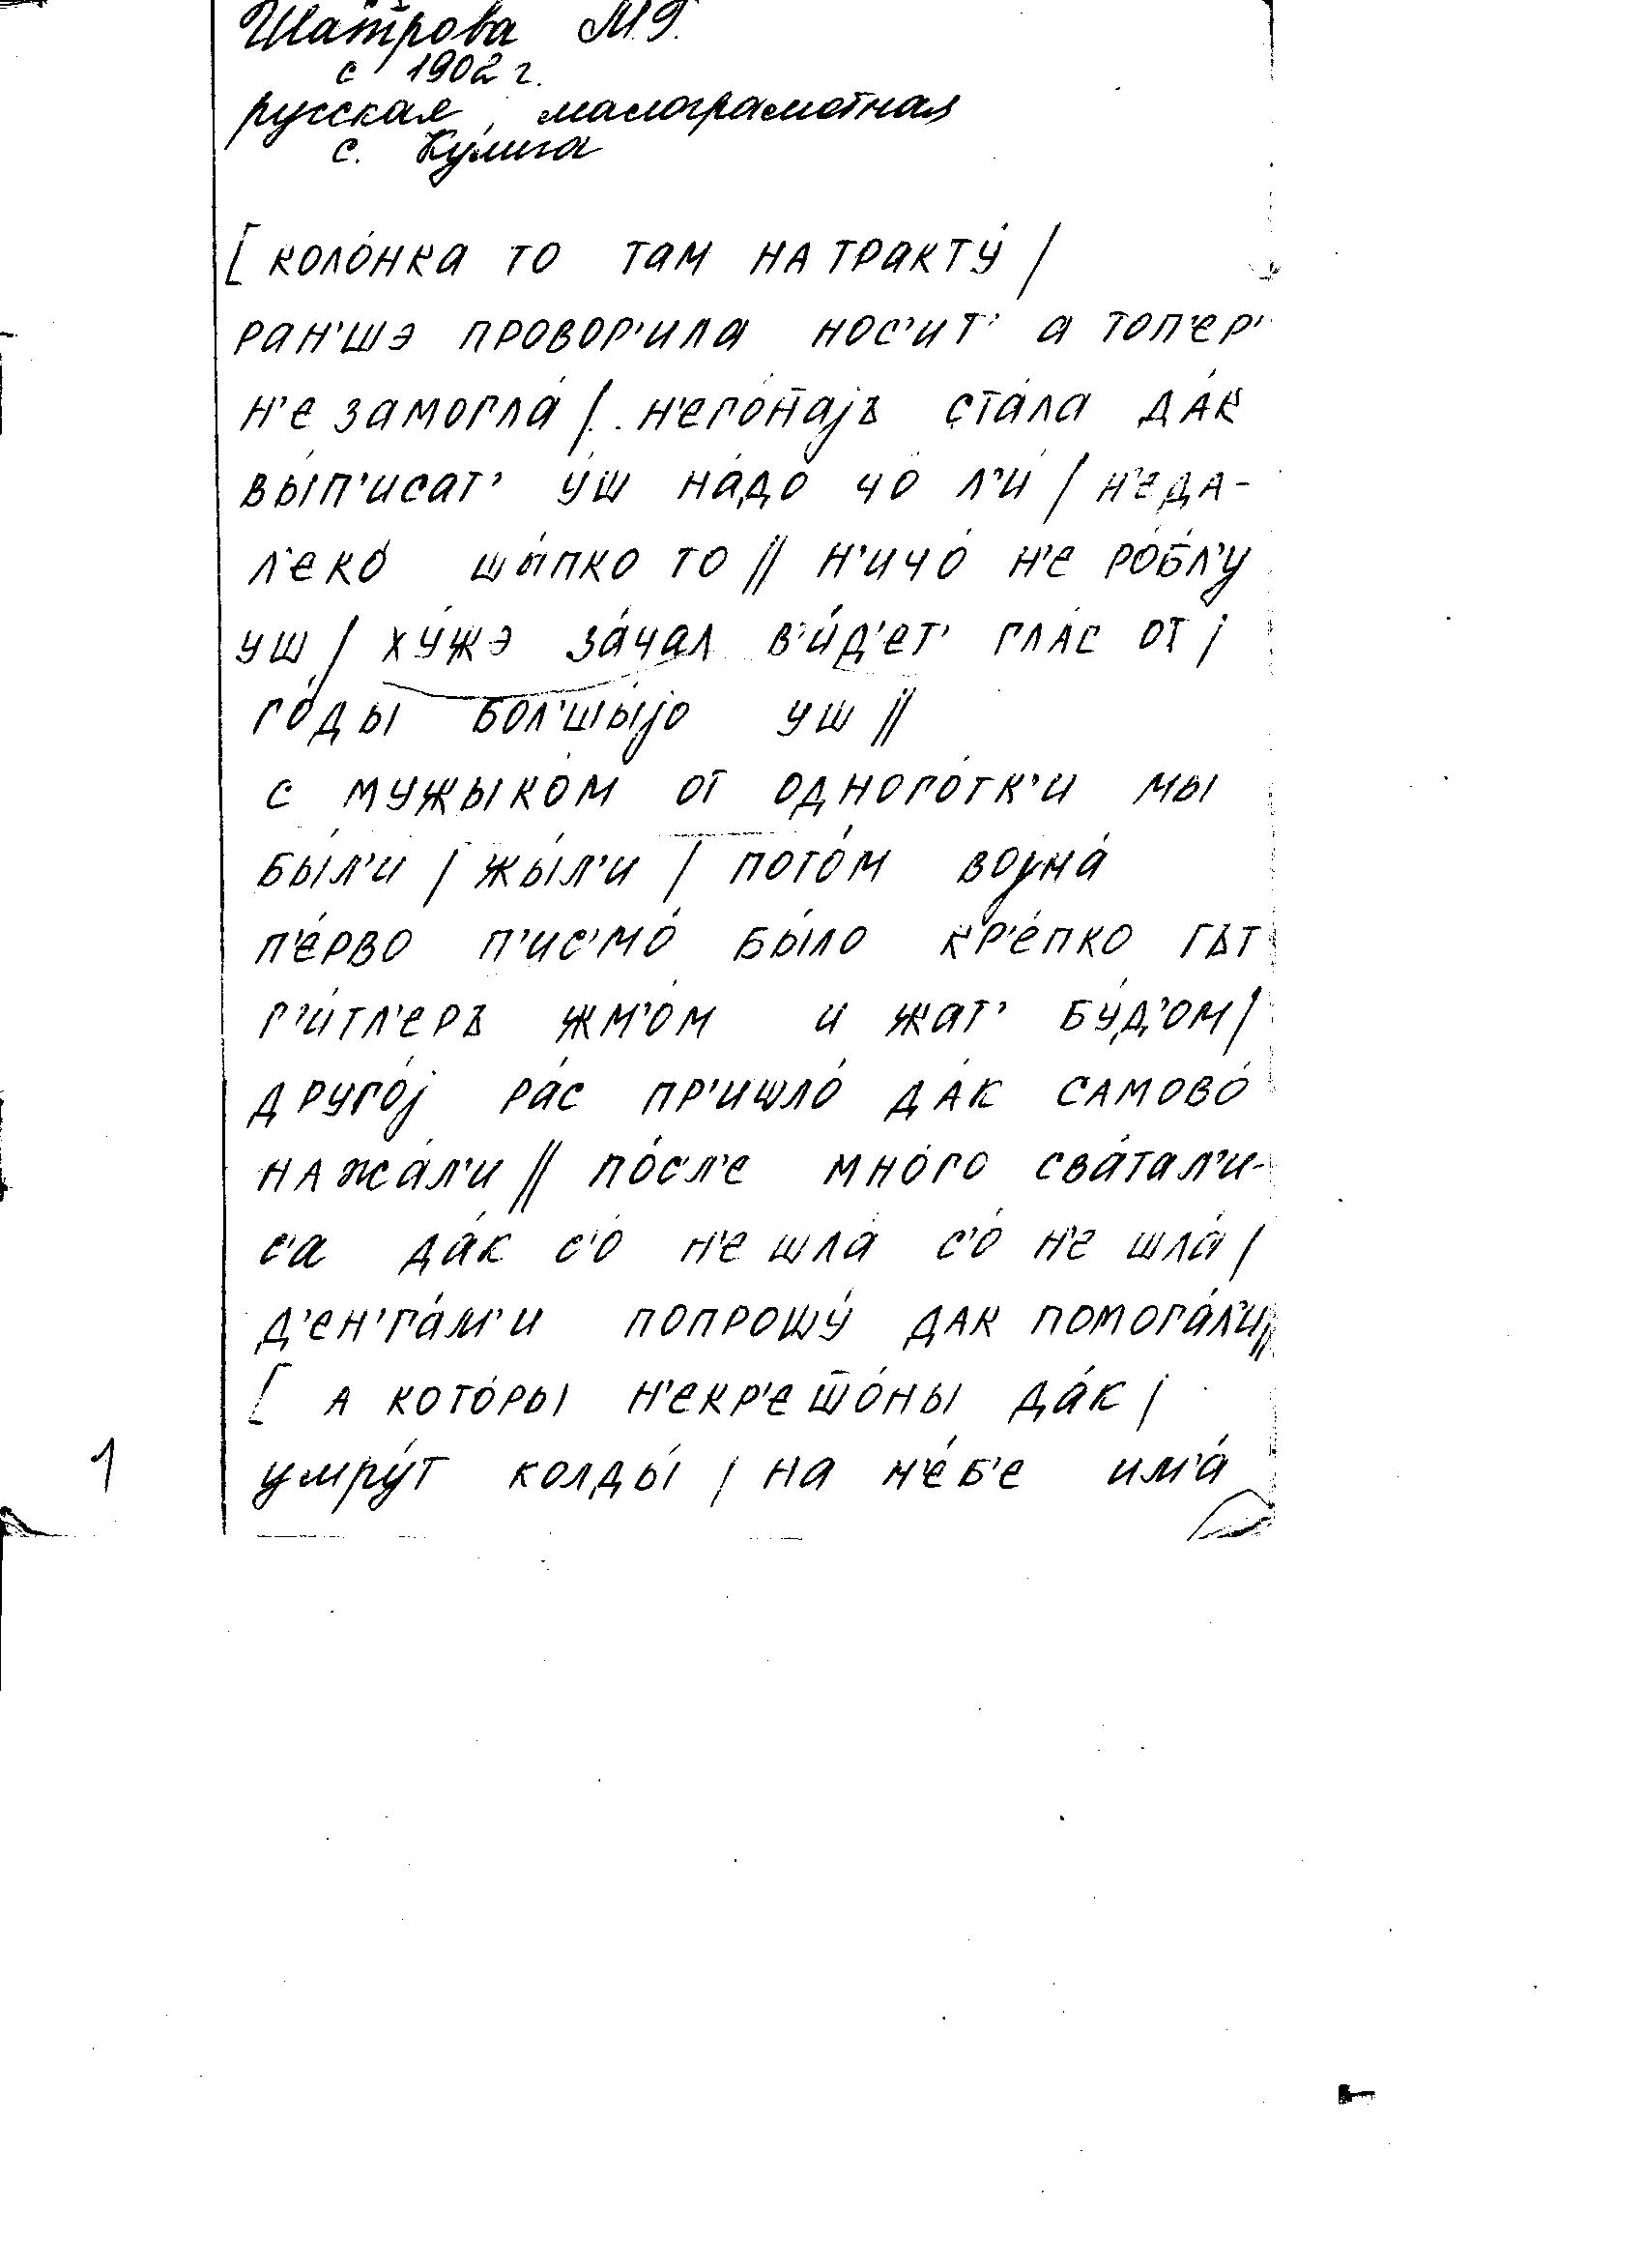 Шатрова М.Г.
с 1902 г.
русская, малограмотная
с. Кулига
[ коло́нка то там на тракту́ /
ран'шэ провор'ила нос'ит' а топ'ер'
н'е замогла́ / н'его́тнајъ ста́ла да́к
вы́п'исат' у́ш на́до чо л'и / н'еда-
л'еко́ шы́пко то // н'ичо́ н'е ро́бл'у
уш / ху́жэ за́чал в'и́д'ет' гла́с от /
го́ды бол'шы́јо уш //
с мужыко́м от одного́тк'и мы
бы́л'и / жы́л'и / пото́м војна́
п'е́рво п'ис'мо́ бы́ло кр'е́пко гът
г'и́тл'еръ жм'ом и жат' бу́д'ом /
друго́ј ра́с пр'ишло́ да́к самово́
нажа́л'и // по́сл'е мно́го сва́тал'и-
с'а да́к с'о н'е шла́ с'о́ н'е шла́ /
д'ен'га́м'и попрошу́ дак помога́л'и //
[ а кото́ры н'екр'ешо́ны да́к /
умру́т колды́ / на н'е́б'е им'а́
1